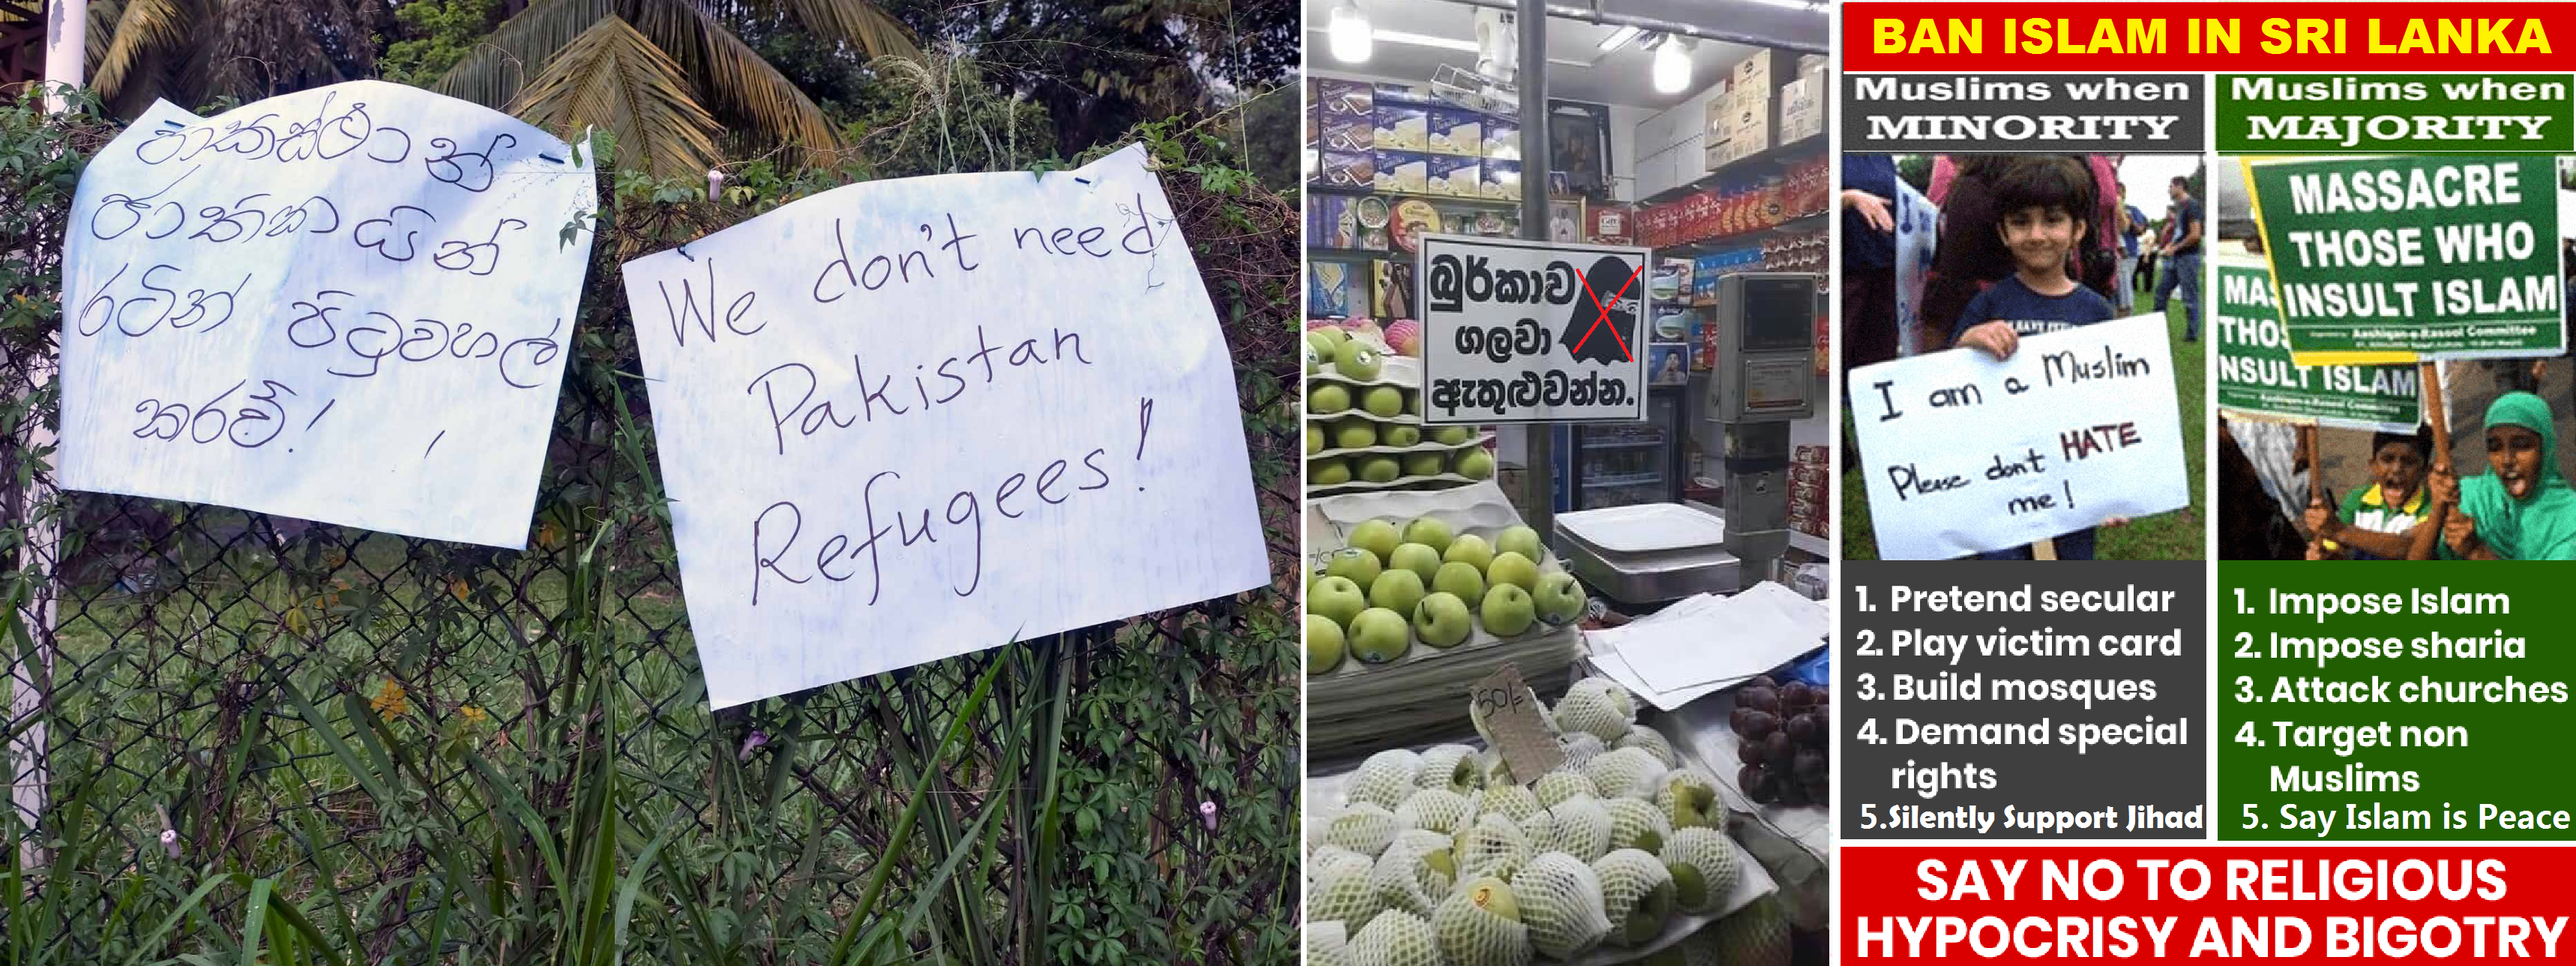 පාකිස්ථාන්
ජාතිකයින්
රටින් පිටුවහල්
කරව්!
We don't need
Pakistan
Refugees!
බුර්කාව
ගලවා
ඇතුළුවන්න.
50/-
BAN ISLAM IN SRI LANKA
Muslims when
MINORITY
I am a Muslim
Please don't HATE
me!
1. Pretend secular
2. Play victim card
3. Build mosques
4. Demand special
rights
5.Silently Support Jihad
Muslims when
MAJORITY
MASSACRE
THOSE WHO
INSULT ISLAM
Aashiqan-e-Rasool Committee
MAS
THOS
INSULT ISLAM
1. Impose Islam
2. Impose sharia
3. Attack churches
4. Target non
Muslims
5. Say Islam is Peace
SAY NO TO RELIGIOUS
HYPOCRISY AND BIGOTRY